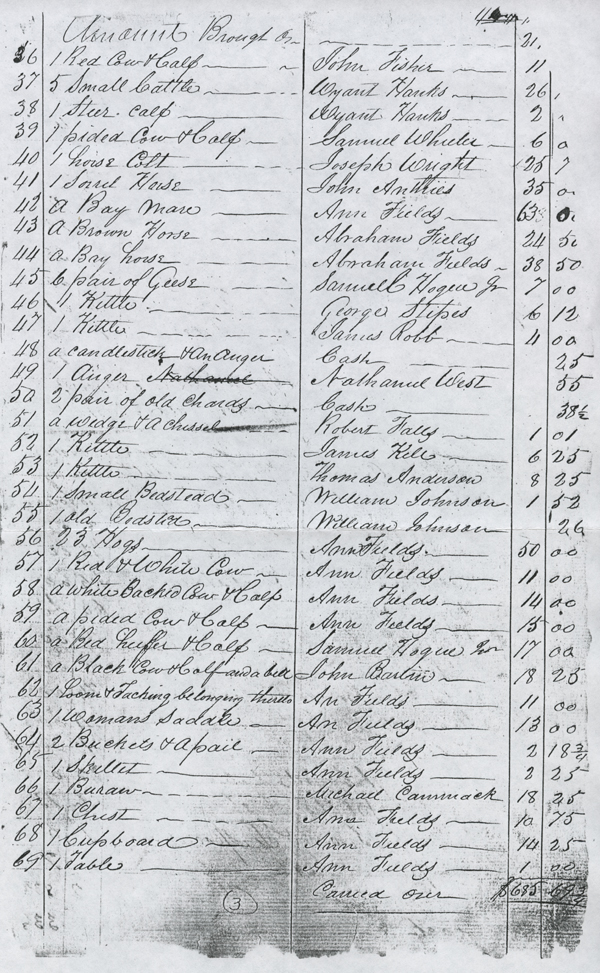 Amount Brought On 21,
36 1 Red Cow & Calf John Fisher 11
37 5 Small Cattle Wyant Hanks 26
38 1 Steer calf Wyant Hanks 2
39 1 pided Cow & Calf Samuel Wheeler 6 0
40 1 horse Colt Joseph Wright 25 7
41 1 Sorrel Horse John Anthies 35 0
42 a Bay Mare Ann Fields 63 0
43 a Brown Horse Abraham Fields 24 50
44 a Bay horse Abraham Fields 38 50
45 6 pair of Geese Samuel Hogue Jr 7 00
46 1 Kittle George Stipes 6 12
47 1 Kittle James Robb 4 00
48 a candlestick & an Auger Cash 25
49 1 Auger Nathaniel West 55
50 2 pair of old chards Cash 38½
51 a widge & a chissel Robert Falls 1 01
52 1 Kittle James Kell 6 25
53 1 Kittle Thomas Anderson 8 25
54 1 Small Bedstead William Johnson 1 52
55 1 old Bedsted William Johnson 26
56 23 Hogs Ann Fields 50 00
57 1 Red & White Cow Ann Fields 11 00
58 a White Backed Cow & Calf Ann Fields 14 00
59 a pided Cow & Calf Ann Fields 15 00
60 a Red heifer & Calf Samuel Hogue 17 00
61 a Black Cow & Calf and a bell John Barlin 18 25
62 1 Loom & Tacking belonging thereto An Fields 11 00
63 1 Womans Saddle An Fields 13 00
64 2 Buckets & a pail Ann Fields 2 18¾
65 1 Skillet Ann Fields 2 25
66 1 Buraw Michael Cammack 18 25
67 1 Chest Ann Fields 10 75
68 1 Cupboard Ann Fields 14 25
69 1 Table Ann Fields 1 00
3 Carried over $685